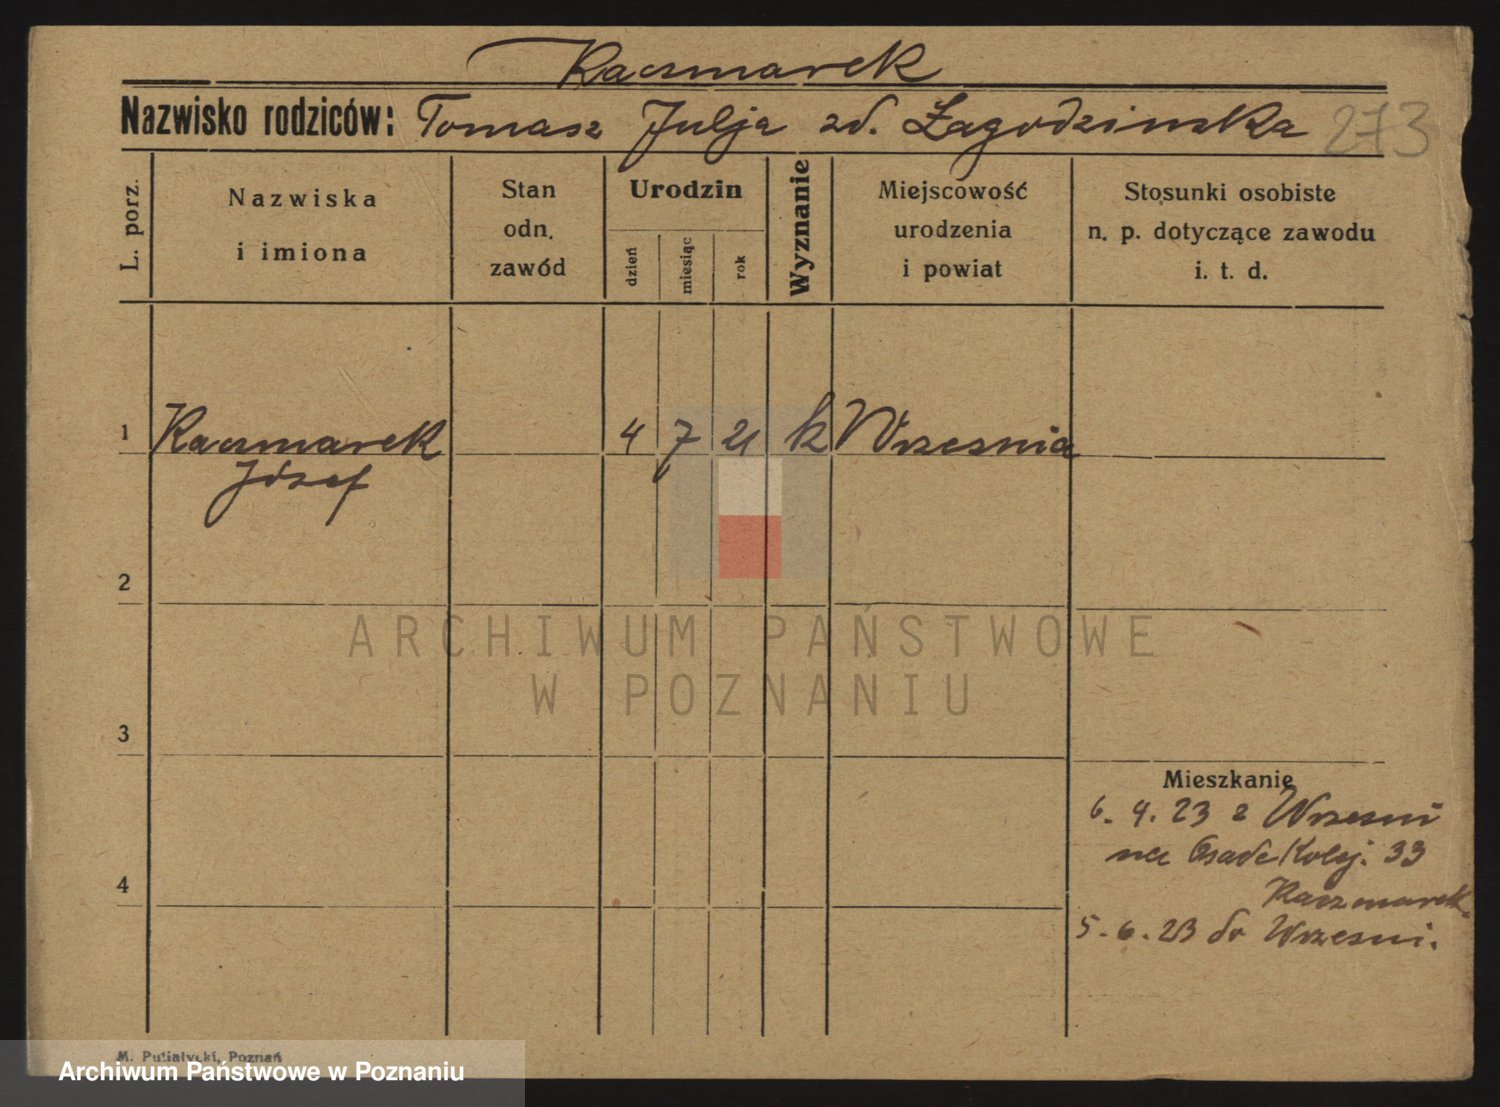 Kaczmarek
Nazwisko rodziców: Tomasz Julja zd. Zagodzinska 273
L. porz.
Nazwiska
i imiona
Stan
odn.
zawód
Urodzin
dzień
miesiąc
rok
Wyznanie
Miejscowość
urodzenia
i powiat
Stosunki osobiste
n. p. dotyczące zawodu
i. t. d.
1 Kaczmarek 4 7 21 k Wrzesnia
Józef
2
ARCHIWUM PAŃSTWOWE
W POZNANIU
3
Mieszkanie
6. 4. 23 z Wrzesni
na Osade Kolej. 33
Kaczmarek
4
5. 6. 23 do Wrzesni.
M. Putiatycki, Poznań
Archiwum Państwowe w Poznaniu